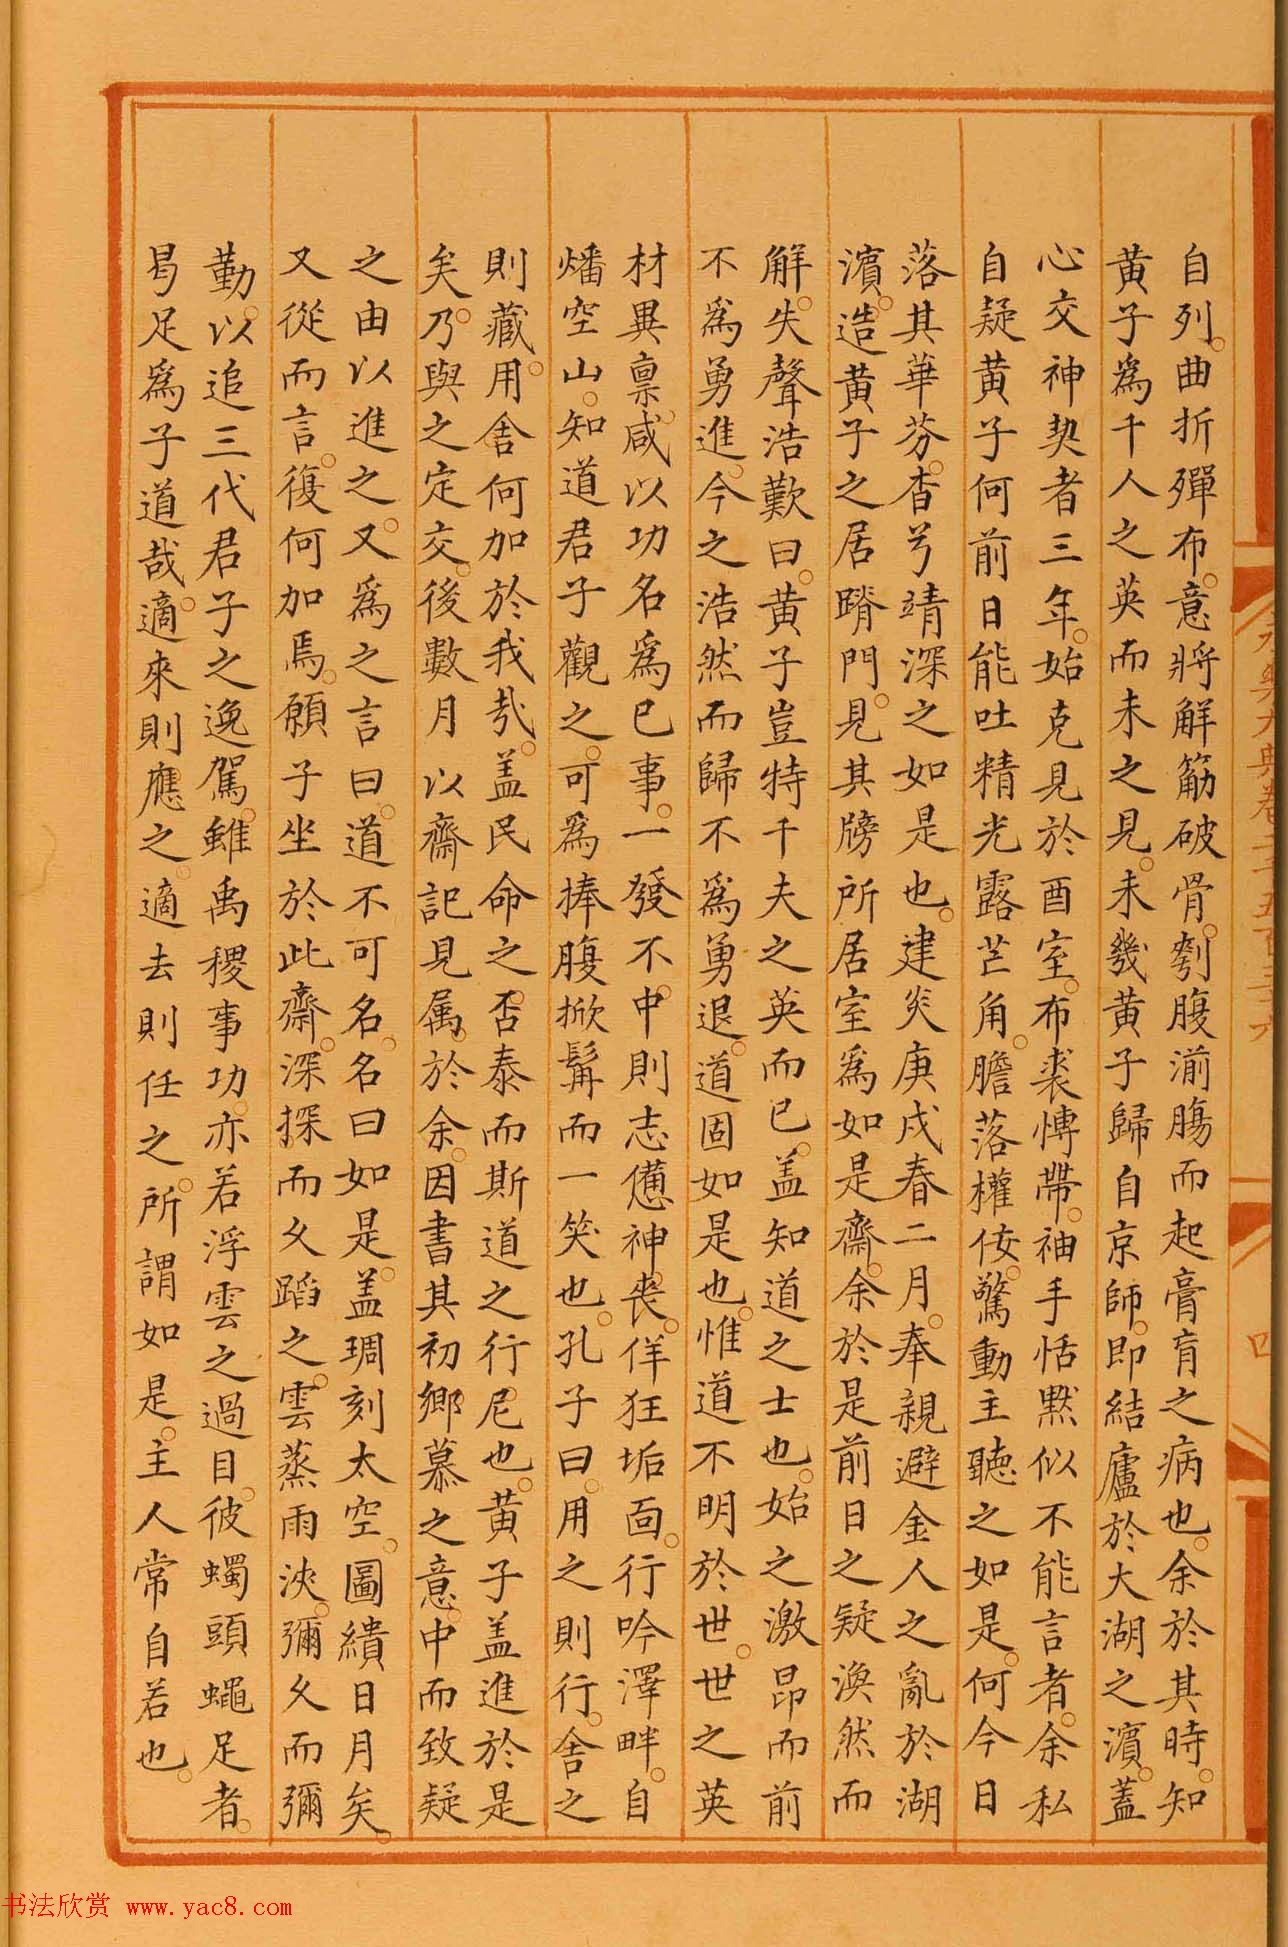 自列曲折殫布意將解觔破骨刳腹湔腸而起膏肓之病也余於其時知
黄子爲千人之英而未之見未幾黄子歸自京師即結廬於大湖之濵蓋
心交神契者三年始克見於酉室布裘愽帶袖手恬默似不能言者余私
自疑黄子何前日能吐精光露芒角膽落權佞驚動主聽之如是何今日
落其華芬杳兮靖深之如是也建炎庚戌春二月奉親避金人之亂於湖
濵造黄子之居踏門見其牓所居室爲如是齋余於是前日之疑渙然而
解失聲浩歎曰黄子豈特千夫之英而已盖知道之士也始之激昂而前
不爲勇進今之浩然而歸不爲勇退道固如是也惟道不明於世世之英
材異禀咸以功名爲已事一發不中則志憊神丧佯狂垢靣行吟澤畔自
燔空山知道君子觀之可爲捧腹掀髯而一笑也孔子曰用之則行舎之
則藏用舎何加於我㢤盖民命之否泰而斯道之行尼也黄子盖進於是
矣乃與之定交後數月以齋記見属於余因書其初鄉慕之意中而致疑
之由以進之又爲之言曰道不可名名曰如是盖琱刻太空圖繢日月矣
又從而言復何加焉願子坐於此齋深探而乆蹈之雲蒸雨浹彌乆而彌
勤以追三代君子之逸駕雖禹稷事功亦若浮雲之過目彼蠋頭蠅足者
曷足爲子道哉適來則應之適去則任之所謂如是主人常自若也
永樂大典卷二千五百三十六
四
书法欣赏 www.yac8.com